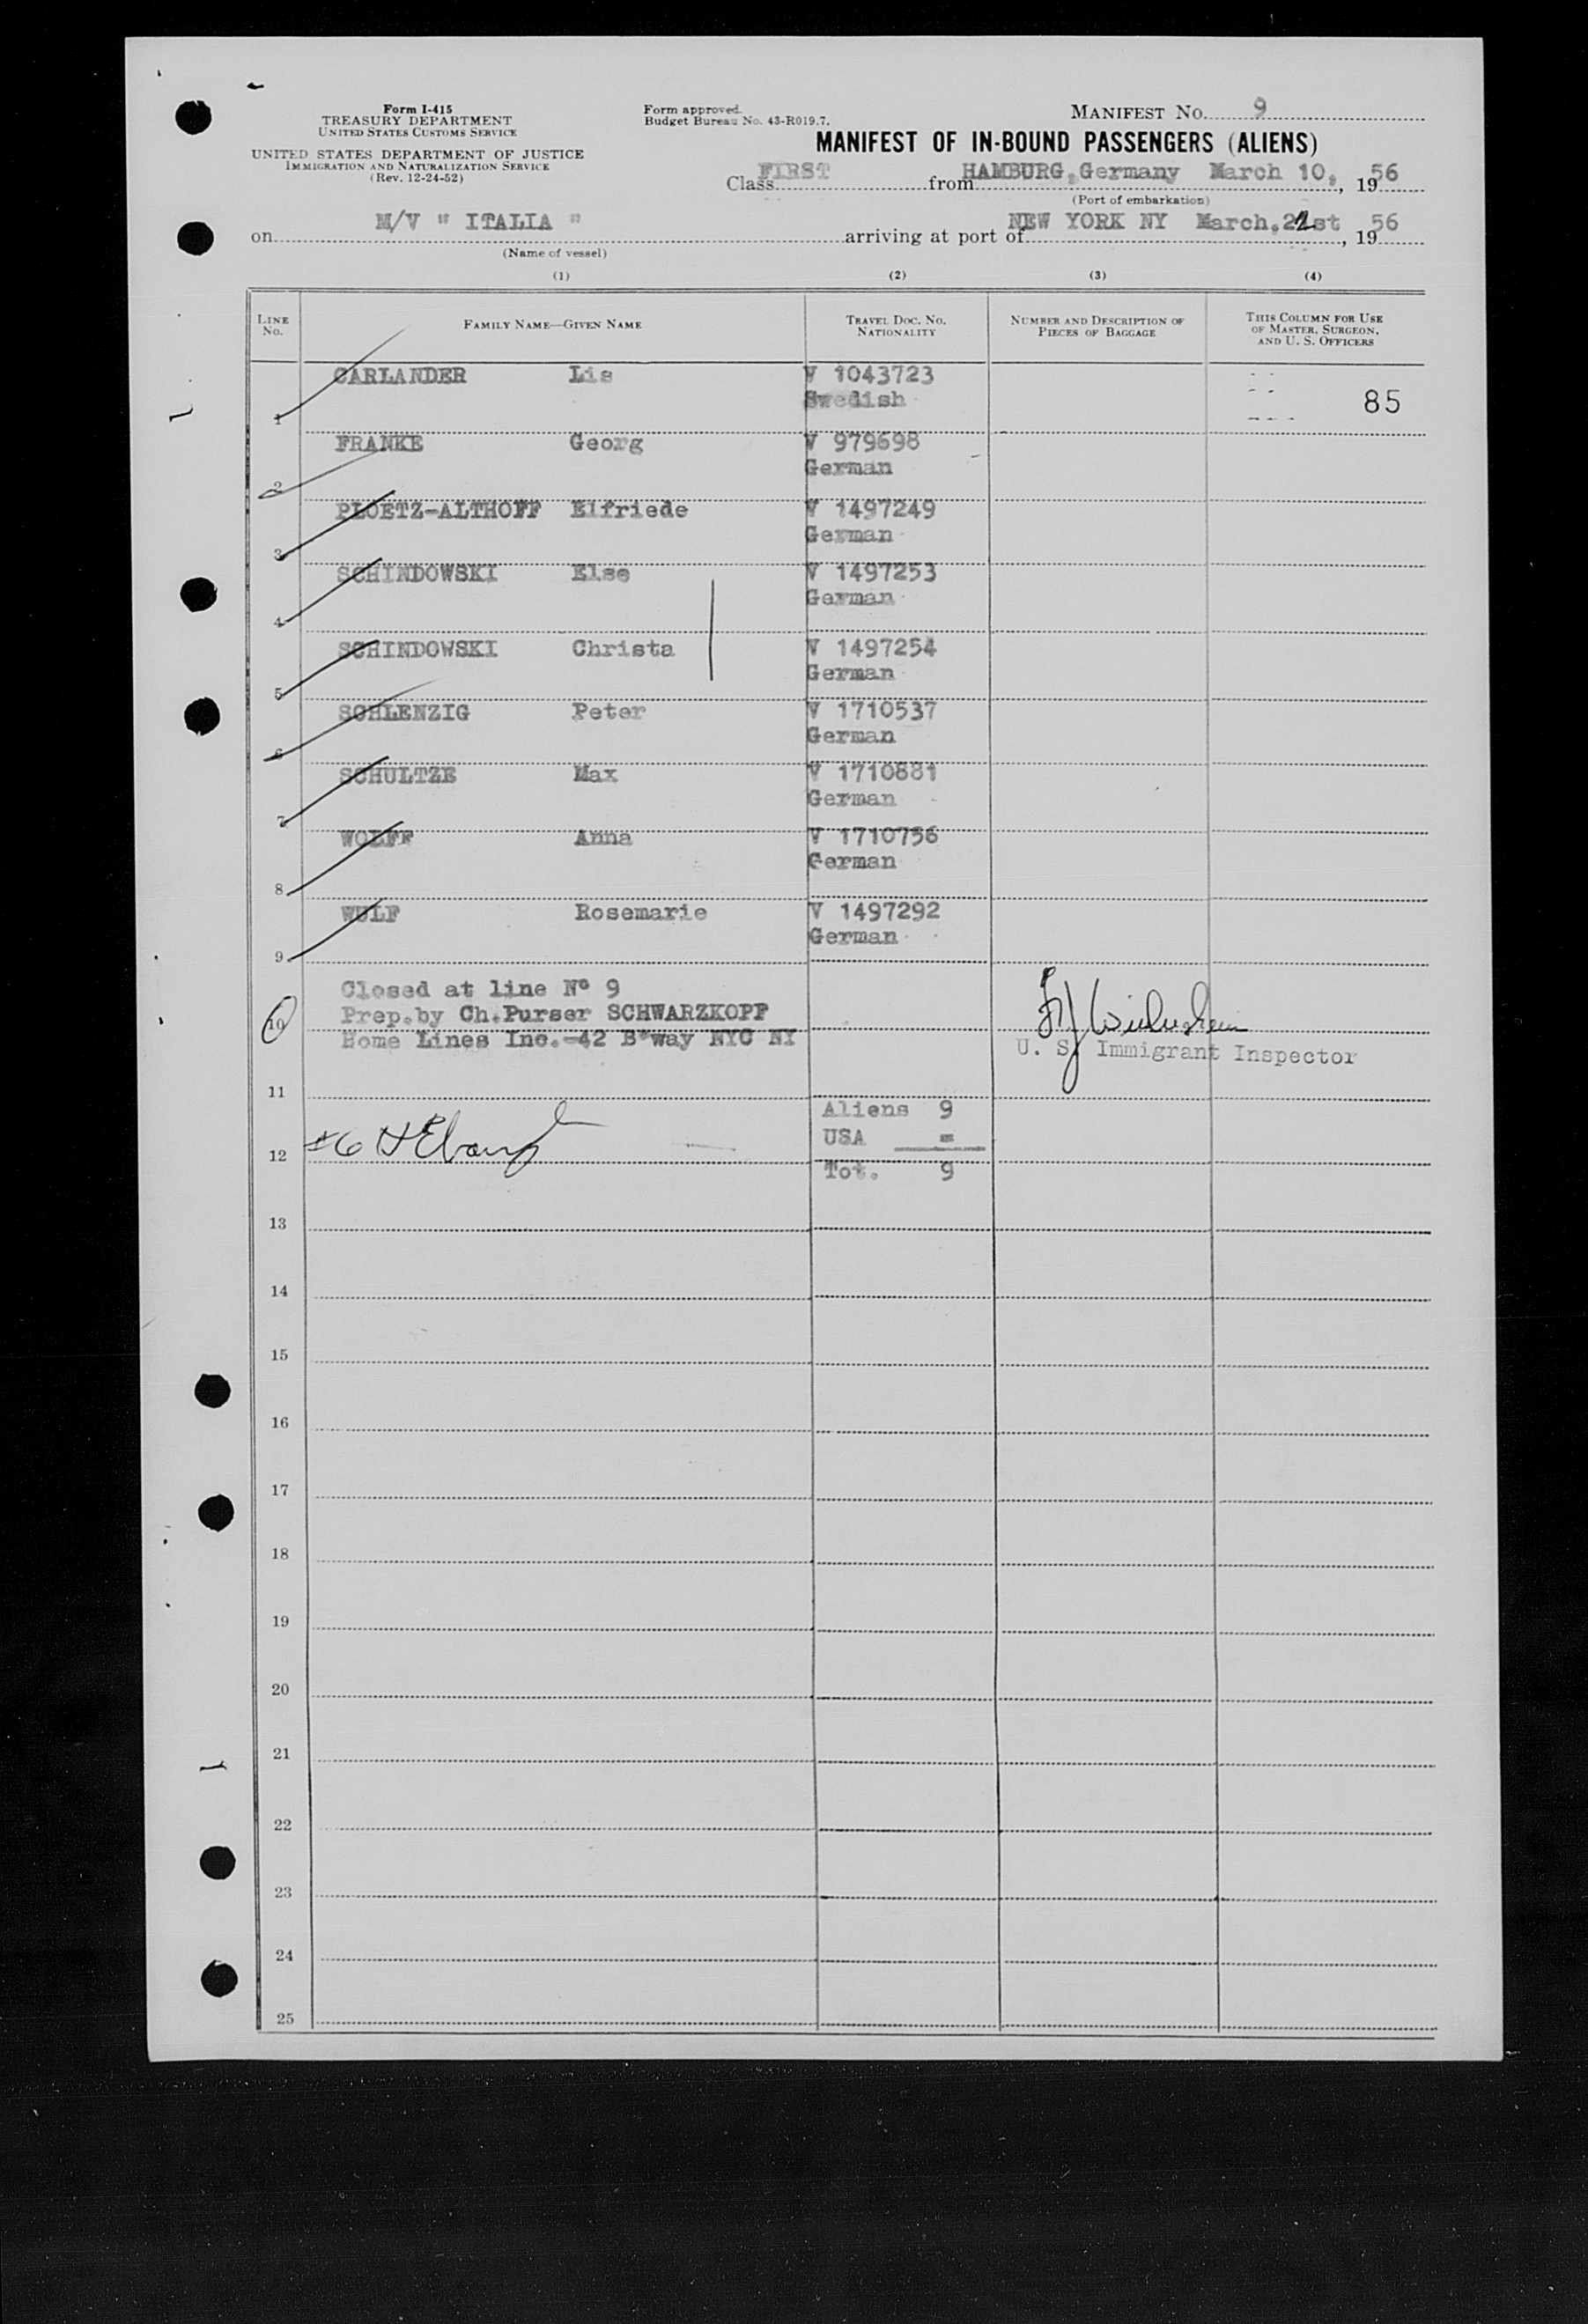 Form I-415
TREASURY DEPARTMENT
UNITED STATES CUSTOMS SERVICE
UNITED STATES DEPARTMENT OF JUSTICE
IMMIGRATION AND NATURALIZATION SERVICE
(Rev. 12-24-52)
Form approved.
Budget Bureau No. 43-R019.7.
MANIFEST NO. 9
MANIFEST OF IN-BOUND PASSENGERS (ALIENS)
Class FIRST from HAMBURG,Germany March 10, , 19 56
(Port of embarkation)
on M/V " ITALIA " arriving at port of NEW YORK NY March.21st , 19 56
(Name of vessel)
(1) (2) (3) (4)
LINE NO. FAMILY NAME—GIVEN NAME TRAVEL DOC. NO. NATIONALITY NUMBER AND DESCRIPTION OF PIECES OF BAGGAGE THIS COLUMN FOR USE OF MASTER, SURGEON, AND U. S. OFFICERS
CARLANDER Lis V 1043723
Swedish 85
1
FRANKE Georg V 979698
German
2
PLOETZ-ALTHOFF Elfriede V 1497249
German
3
SCHINDOWSKI Else V 1497253
German
4
SCHINDOWSKI Christa V 1497254
German
5
SCHLENZIG Peter V 1710537
German
6
SCHULTZE Max V 1710881
German
7
WOLFF Anna V 1710756
German
8
WULF Rosemarie V 1497292
German
9
Closed at line Nº 9
Prep.by Ch.Purser SCHWARZKOPF
10
Home Lines Inc.-42 B'way NYC NY
U. S. Immigrant Inspector
11
Aliens 9
USA =
12 #6
Tot. 9
13
14
15
16
17
18
19
20
21
22
23
24
25